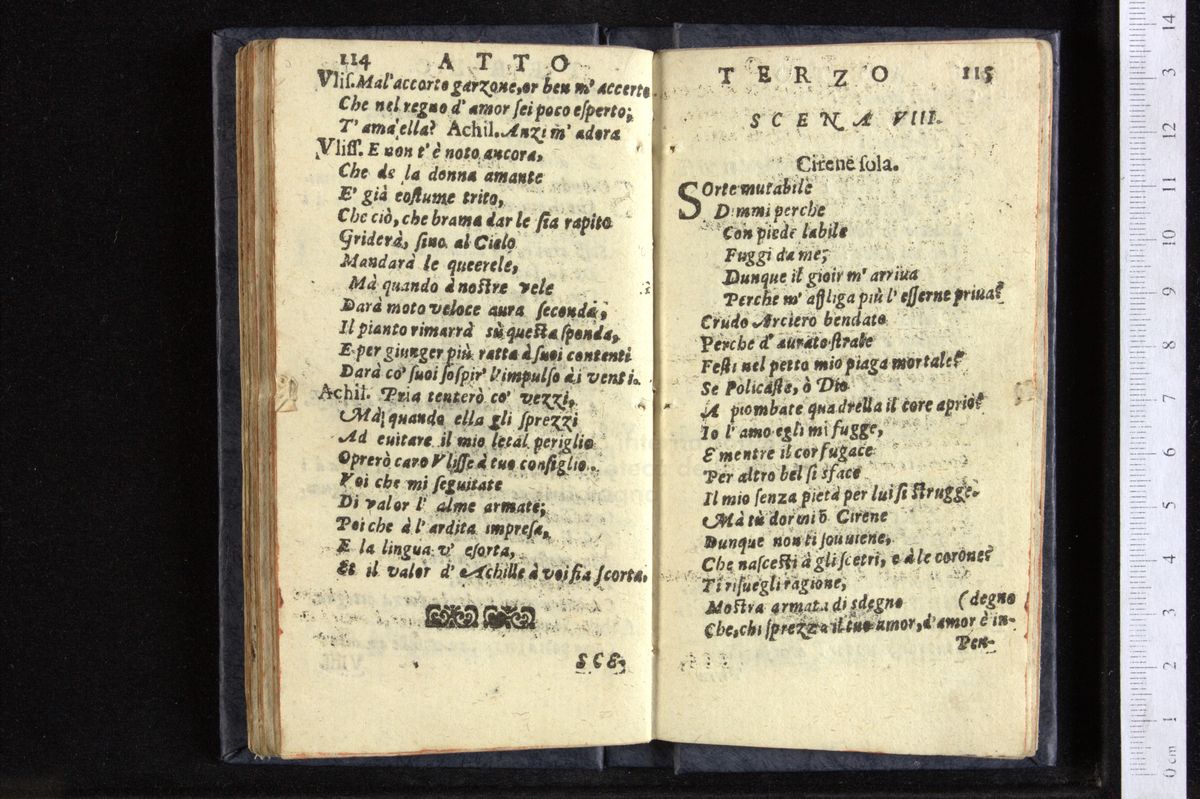 114 ATTO
Vlis. Mal'accorto garzone, or ben m'accerto
Che nel regno d'amor sei poco esperto;
T'ama ella? Achil. Anzi m'adora
Vliss. E non t'è noto ancora,
Che de la donna amante
E' già costume trito,
Che ciò, che brama dar le sia rapito
Griderà, fino al Cielo
Mandarà le queerele,
Mà quando à nostre vele
Darà moto veloce aura seconda,
Il pianto rimarrà sù questa sponda,
E per giunger più ratta à suoi contenti
Darà co' suoi sospir' l'impulso ài venti.
Achil. Pria tenterò co' vezzi,
Mà quando ella gli sprezzi
Ad euitare il mio letal periglio
Oprerò caro Vlisse à tuo consiglio.
Voi che mi seguitate
Di valor l'alme armate;
Poi che à l'ardita impresa,
E la lingua v'esorta,
Et il valor d'Achille à voi sia scorta.
SCE-
TERZO 115
SCENA VIII.
Cirene sola.
SOrte mutabile
Dimmi perche
Con piede labile
Fuggi da me;
Dunque il gioir m'arriua
Perche m'affliga più l'esserne priua?
Crudo Arciero bendato
Perche d'aurato strale
Festi nel petto mio piaga mortale?
Se Policaste, ò Dio
A piombate quadrella il core aprio?
Io l'amo egli mi fugge,
E mentre il cor fugace
Per altro bel si sface
Il mio senza pietà per lui si strugge.
Mà tù dormi ò Cirene
Dunque non ti souuiene,
Che nascesti à gli scetri, e à le corone?
Ti risuegli ragione,
Mostra armata di sdegno (degno
Che, chi sprezza il tuo amor, d'amor è in-
Pen-